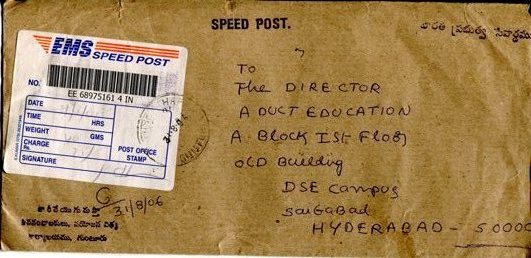 SPEED POST.
భారత ప్రభుత్వ సేవార్థము
EMS SPEED POST
NO.
EE 68975161 4 IN
DATE
TIME HRS
WEIGHT GMS
CHARGE
SIGNATURE
POST OFFICE
STAMP
To
The DIRECTOR
ADUCT EDUCATION
A. Block Ist Floor
OLD Building
DSE Campus
SaiGabad
HYDERABAD - 50000
31/8/06
కార్యాలయము, గుంటూరు